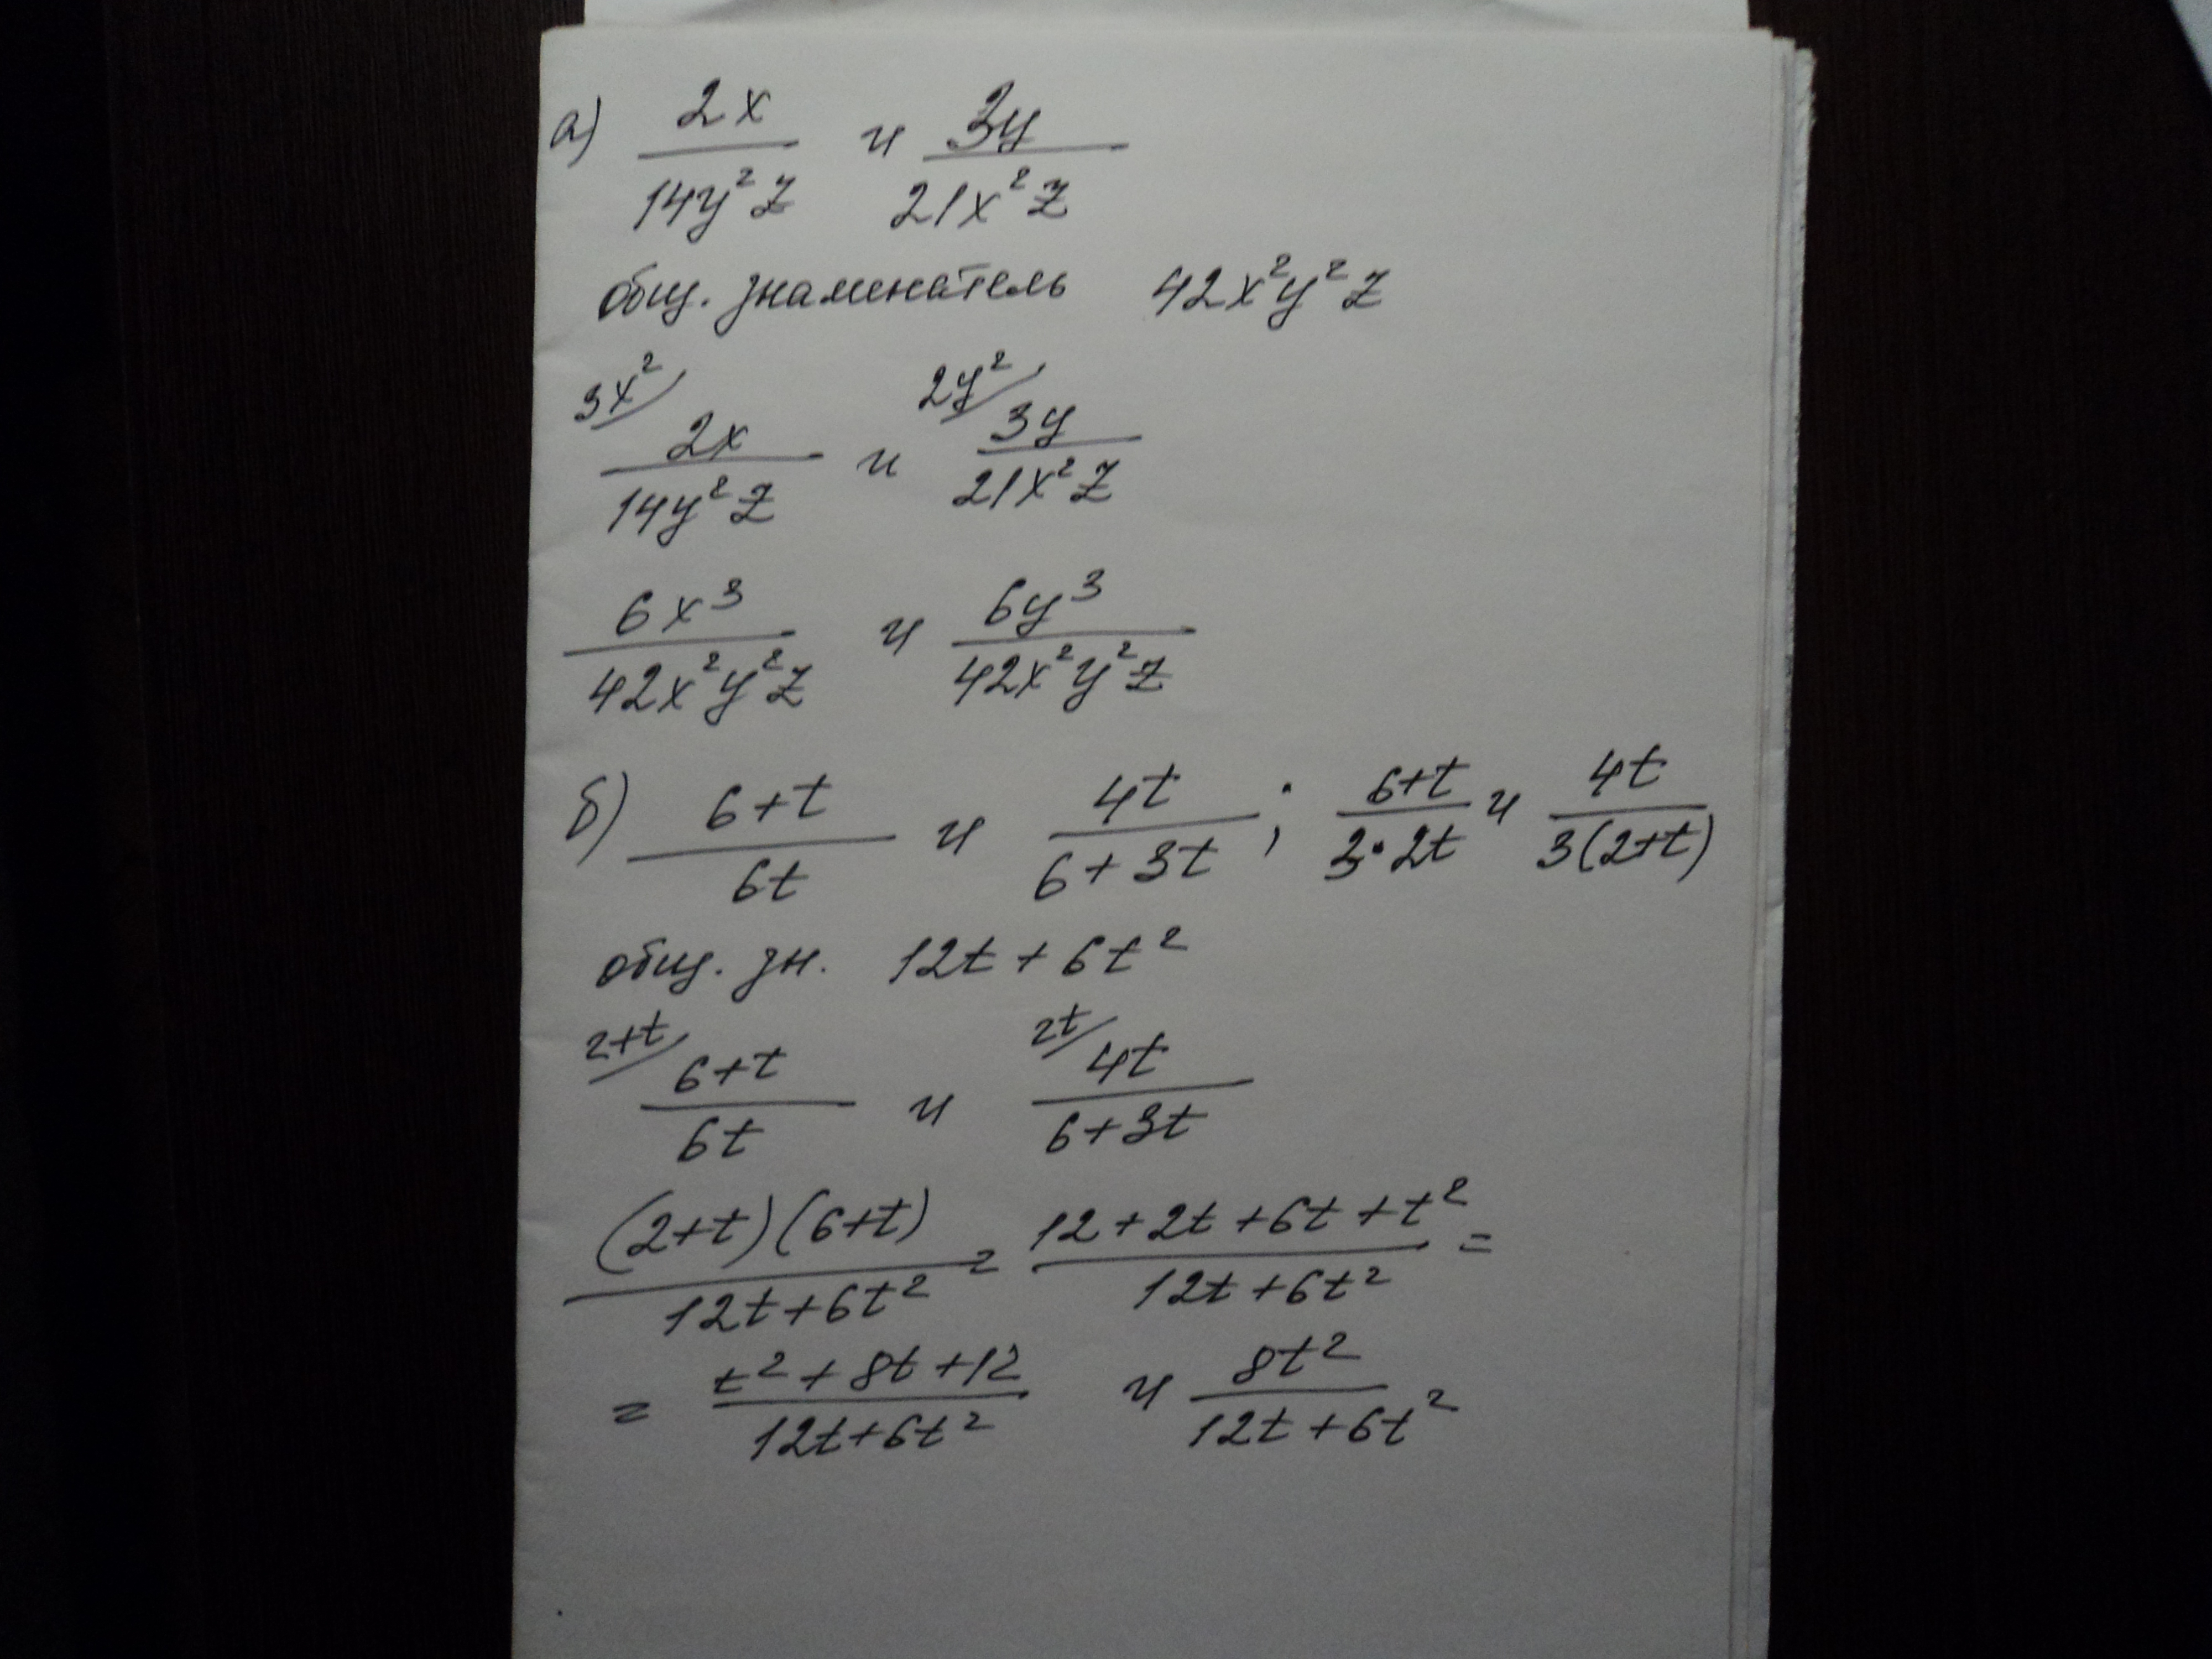 а) 2x/14y²z и 3y/21x²z
общ. знаменатель 42x²y²z
3x²/ 2x/14y²z и 2y²/ 3y/21x²z
6x³/42x²y²z и 6y³/42x²y²z
б) 6+t/6t и 4t/6+3t ; 6+t/3·2t и 4t/3(2+t)
общ. зн. 12t+6t²
2+t/ 6+t/6t и 2t/ 4t/6+3t
(2+t)(6+t)/12t+6t² = 12+2t+6t+t²/12t+6t² =
= t²+8t+12/12t+6t² и 8t²/12t+6t²